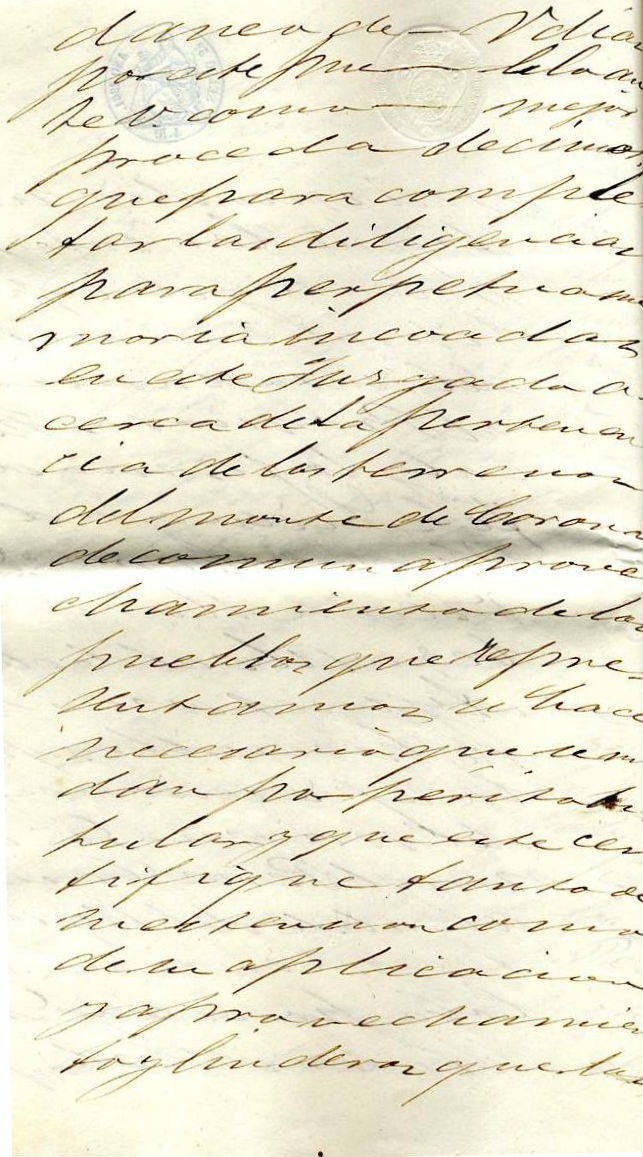 daneo de — Udías
por este pue — blo an
te V. como — mejor
proceda decimos
que para comple
tar las diligencias
para perpetua me
moria incoadas
en este Juzgado a
cerca de la pertenen
cia de los terrenos
del monte de Corona
de comun aprove
chamiento de los
pueblos que repre-
sentamos se hace
necesario que se mi
dan por périto ti
tular y que este cer
tifique tanto de
su estension como
de su aplicacion
y aprovechamien
to y linderos que los